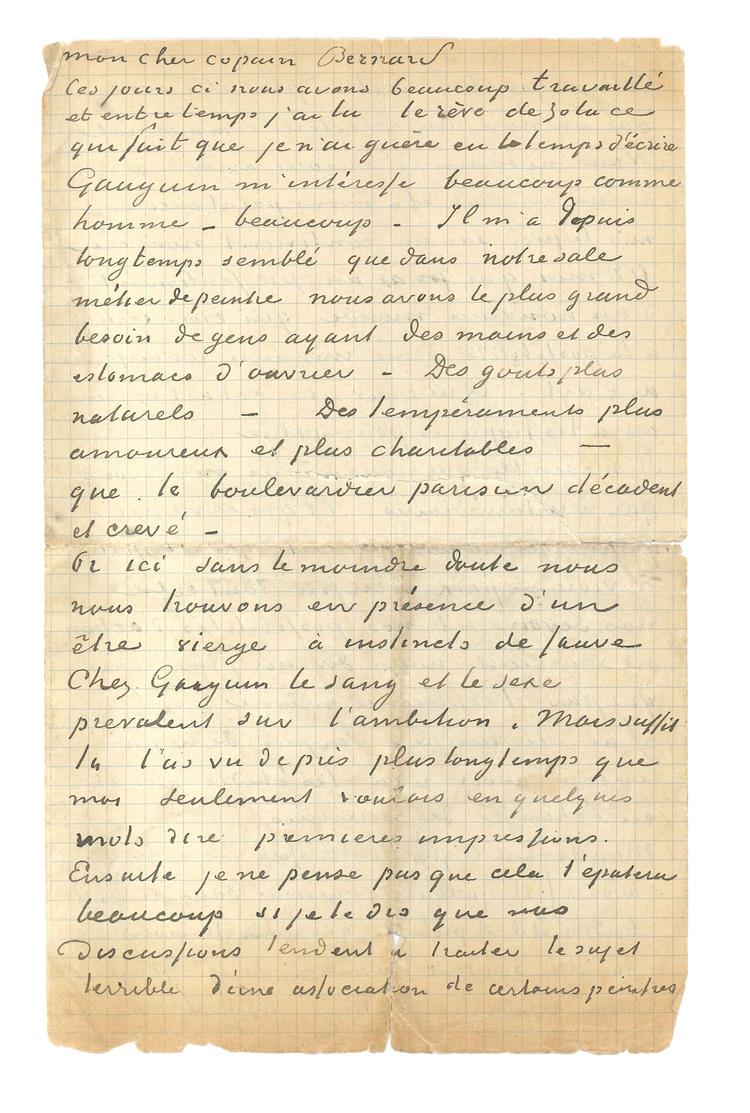 mon cher copain Bernard
Ces jours ci nous avons beaucoup travaillé
et entre temps j'ai lu le rêve de Zola ce
qui fait que je n'ai guère eu le temps d'écrire
Gauguin m'intéresse beaucoup comme
homme – beaucoup – Il m'a depuis
longtemps semblé que dans notre sale
métier de peintre nous avons le plus grand
besoin de gens ayant des mains et des
estomacs d'ouvrier – Des gouts plus
naturels – Des tempéraments plus
amoureux et plus charitables —
que le boulevardier parisien décadent
et crevé –
Or ici sans le moindre doute nous
nous trouvons en présence d'un
être vierge à instincts de fauve
Chez Gauguin le sang et le sexe
prevalent sur l'ambition. Mais suffit
tu l'as vu de près plus longtemps que
moi seulement voulais en quelques
mots dire premieres impressions.
Ensuite je ne pense pas que cela t'épatera
beaucoup si je te dis que nos
discussions tendent à traiter le sujet
terrible d'une association de certains peintres